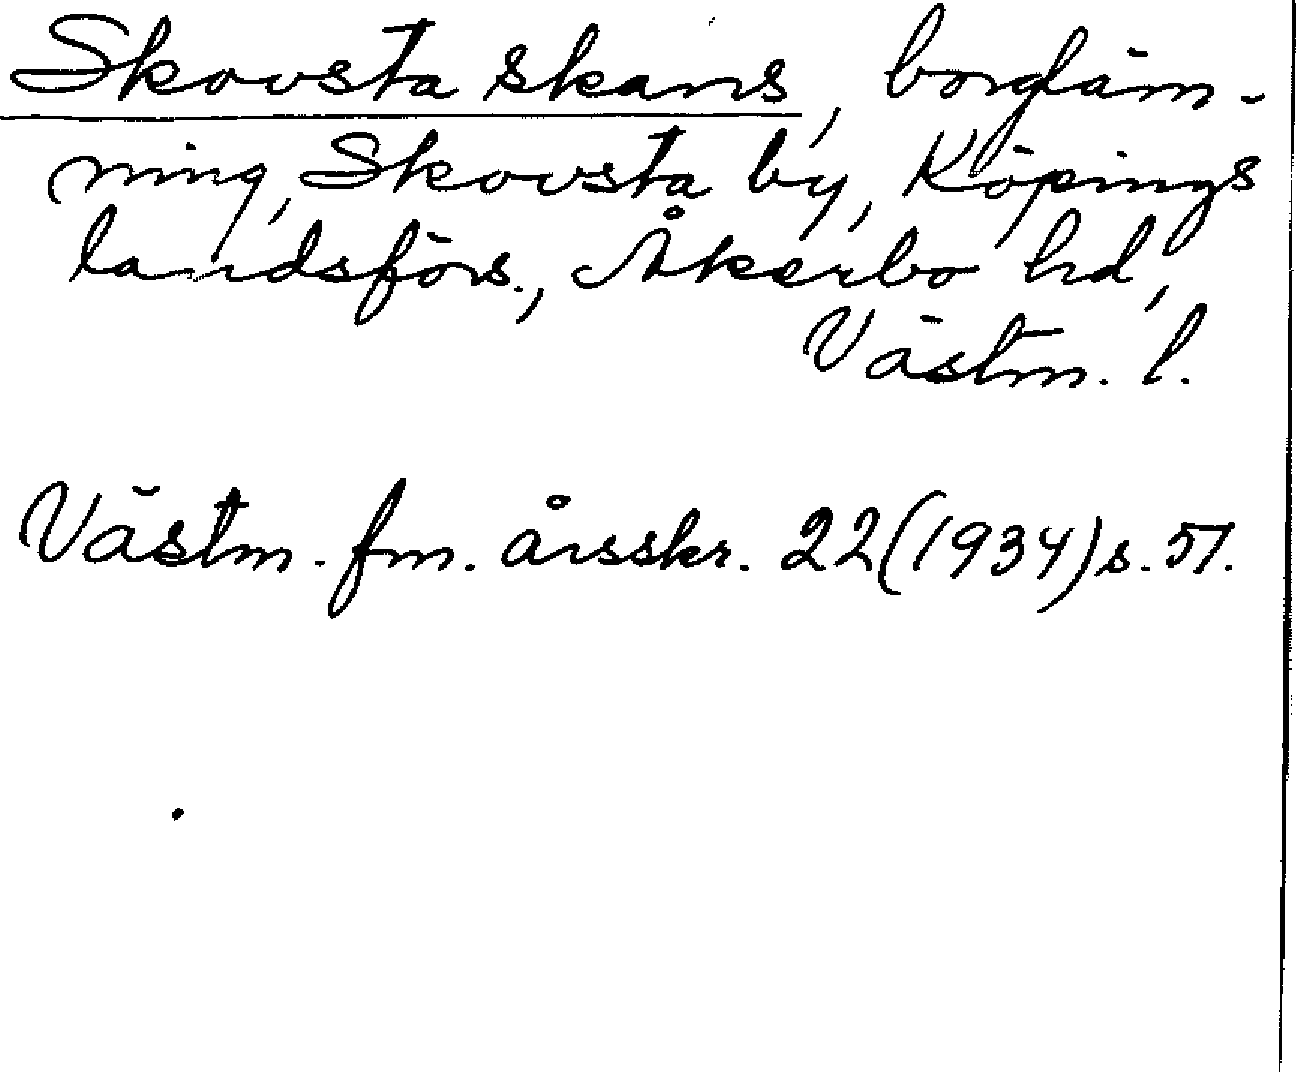 Skovsta skans, borgläm-
ning, Skovsta by, Köpings
landsförs., Åkerbo hd,
Västm. l.
Västm. fm. årsskr. 22 (1934) s. 57.